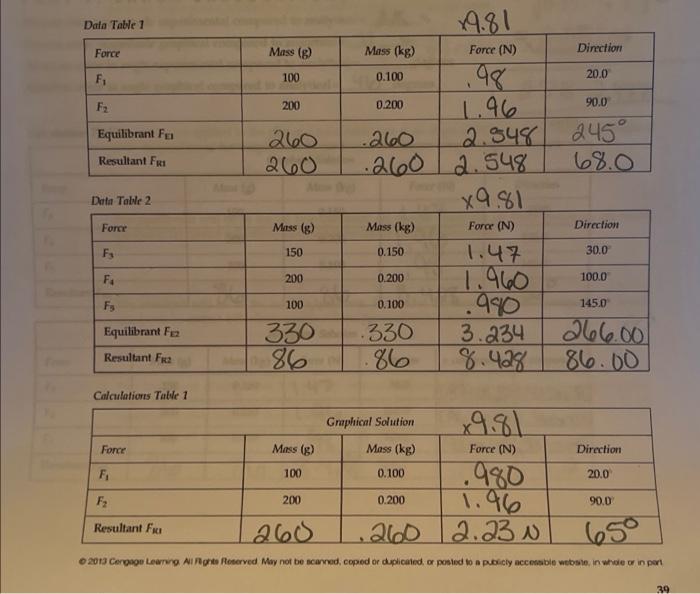 Data Table 1 x9.81
Force Mass (g) Mass (kg) Force (N) Direction
F1 100 0.100 .98 20.0°
F2 200 0.200 1.96 90.0°
Equilibrant FE1 260 .260 2.548 245°
Resultant FR1 260 .260 2.548 68.0
Data Table 2 x9.81
Force Mass (g) Mass (kg) Force (N) Direction
F3 150 0.150 1.47 30.0°
F4 200 0.200 1.960 100.0°
F5 100 0.100 .980 145.0°
Equilibrant FE2 330 .330 3.234 266.00
Resultant FR2 86 .86 8.428 86.00
Calculations Table 1
Graphical Solution x9.81
Force Mass (g) Mass (kg) Force (N) Direction
F1 100 0.100 .980 20.0°
F2 200 0.200 1.96 90.0°
Resultant FR1 260 .260 2.23 N 65°
© 2013 Cengage Learning. All Rights Reserved. May not be scanned, copied or duplicated, or posted to a publicly accessible website, in whole or in part.
39